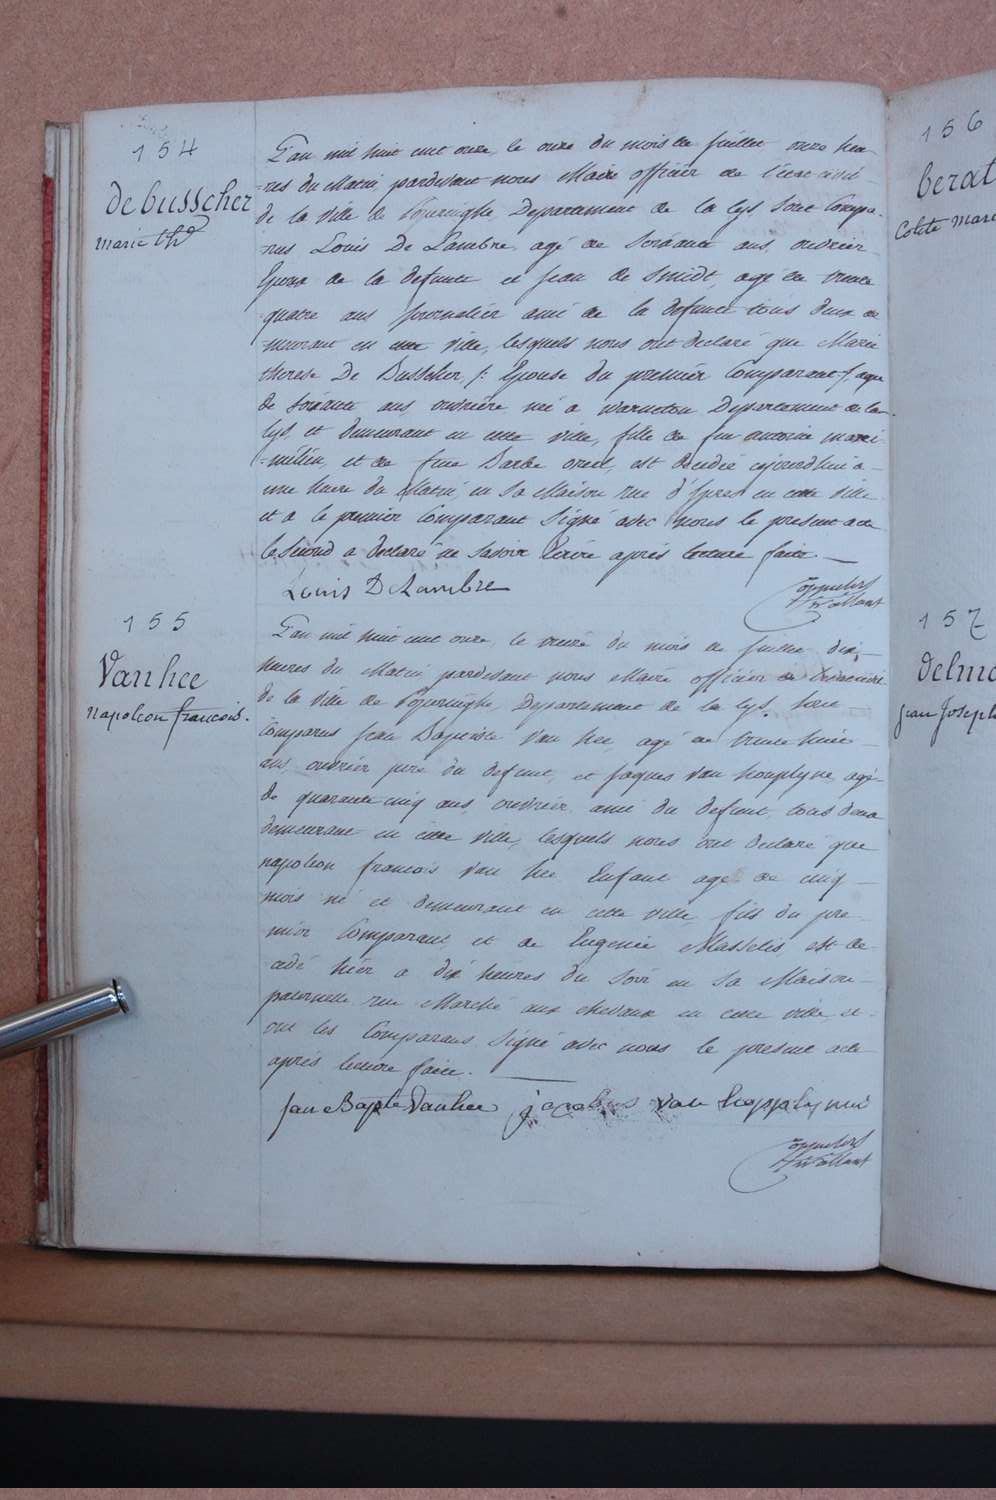 154
de busscher
marie thé
L'an mil huit cent onze, le onze du mois de juillet onze heu
-res du Matin, pardevant nous Maire officier de l'état civil
de la ville de Poperinghe Departement de la Lys sont Compa-
-rus Louis De Lambre, agé de soixante ans, ouvrier
Epoux de la defunte et jean de Smidt, agé de trente
quatre ans journalier ami de la defunte tous deux de
-meurant en cette ville, lesquels nous ont declaré que Marie
therese De Busscher, /: Epouse du premier Comparant :/, agee
de soixante ans, ouvrière né a warneton Departement de la
Lys, et demeurant en cette ville, fille de feu antoine maxi-
-milien, et de feue Barbe, est decedée aujourd'hui a
une heure du Matin, en sa Maison rue d'Ipres en cette ville
et a le premier Comparant Signé avec nous le present acte
le second a declaré ne savoir Ecrire après lecture faite
Louis D Lambre
155
Van hee
Napoleon francois.
L'an mil huit cent onze, le treize du mois de juillet dix
heures du Matin pardevant nous Maire officier de
de la ville de Poperinghe, Departement de la Lys, sont
Comparus jean Baptiste Van hee, agé de trente huit
ans, ouvrier pere du defunt, et jaques Van houplyne agé
de quarante cinq ans, ouvrier, ami du defunt, tous deux
demeurant en cette ville, lesquels nous ont declaré que
napoleon francois Van hee Enfant agé de cinq
mois né et demeurant en cette ville, fils du pre-
mier Comparant, et de Eugenie Masselis, est de
cedé hier a dix heures du soir en sa Maison
paternelle rue Marché aux chevaux en cette ville et
ont les Comparans signé avec nous le present acte
après lecture faite.
jan Bapte Vanhee jacobus van
156
berat
Colette Marie
157
delmo
jean joseph